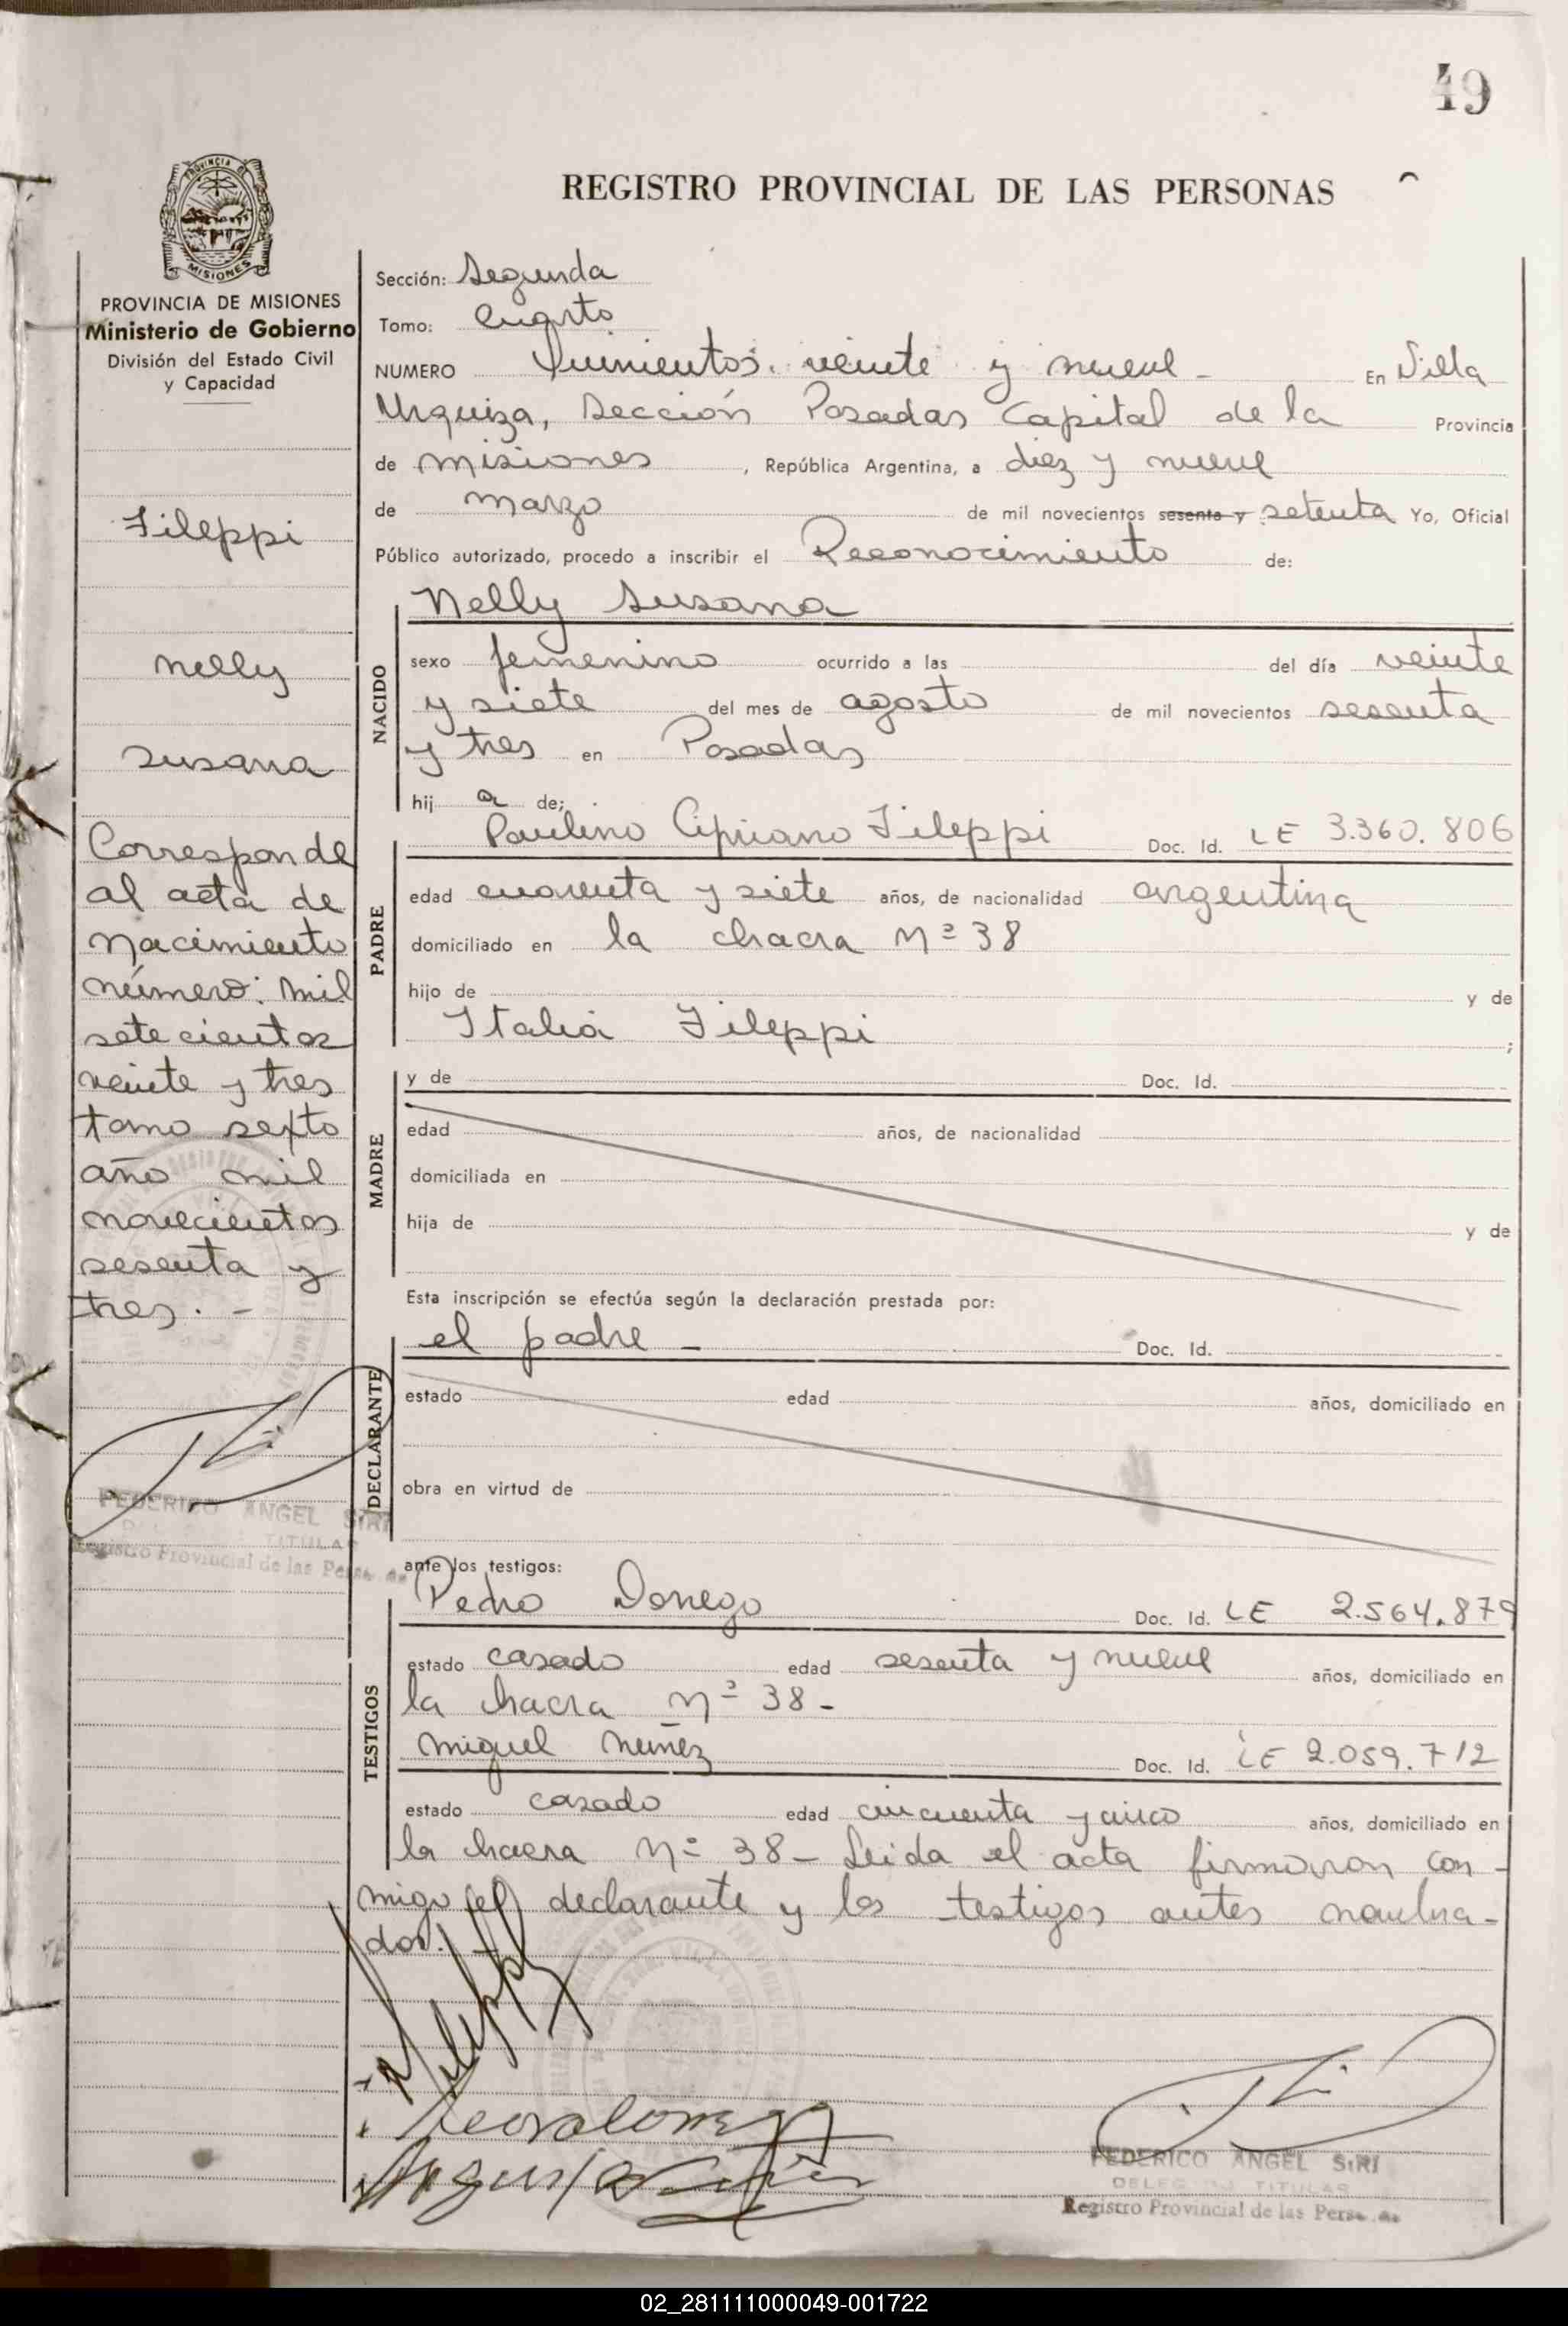 49
REGISTRO PROVINCIAL DE LAS PERSONAS
PROVINCIA DE
MISIONES
PROVINCIA DE MISIONES
Ministerio de Gobierno
División del Estado Civil
y Capacidad
Fileppi
Nelly
Susana
Corresponde
al acta de
Nacimiento
número: mil
setecientos
veinte y tres
tomo sexto
año mil
novecientos
sesenta y
tres. -
FEDERICO ANGEL SIRI
TITULAR
Registro Provincial de las Perso
Sección: Segunda
Tomo: Cuarto
NUMERO Quinientos veinte y nueve - En Villa
Urquiza, Sección Posadas Capital de la Provincia
de Misiones, República Argentina, a diez y nueve
de marzo de mil novecientos sesenta y setenta Yo, Oficial
Público autorizado, procedo a inscribir el Reconocimiento de:
NACIDO
Nelly Susana
sexo femenino ocurrido a las del día veinte
y siete del mes de agosto de mil novecientos sesenta
y tres en Posadas
hij a de;
PADRE
Paulino Cipriano Fileppi Doc. Id. LE 3.360.806
edad cuarenta y siete años, de nacionalidad argentina
domiciliado en la chacra Nº 38
hijo de y de
Italia Fileppi ;
MADRE
y de Doc. Id.
edad años, de nacionalidad
domiciliada en
hija de y de
Esta inscripción se efectúa según la declaración prestada por:
DECLARANTE
el padre - Doc. Id.
estado edad años, domiciliado en
obra en virtud de
ante los testigos:
TESTIGOS
Pedro Dorrego Doc. Id. LE 2.564.879
estado casado edad sesenta y nueve años, domiciliado en
la chacra Nº 38 -
Miguel Nuñez Doc. Id. LE 2.059.712
estado casado edad cincuenta y cinco años, domiciliado en
la chacra Nº 38 - Leida el acta firmaron con-
migo el declarante y los testigos antes nombra-
dos. -
FEDERICO ANGEL SIRI
DELEGADO TITULAR
Registro Provincial de las Perso
02_281111000049-001722